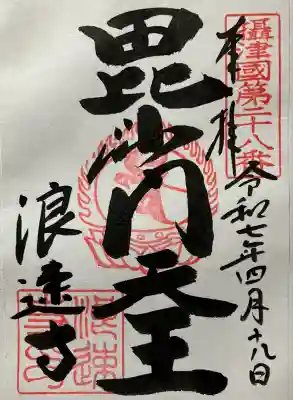 攝津國第二十八番
奉拝
令和七年四月十八日
毘沙門天王
浪速寺